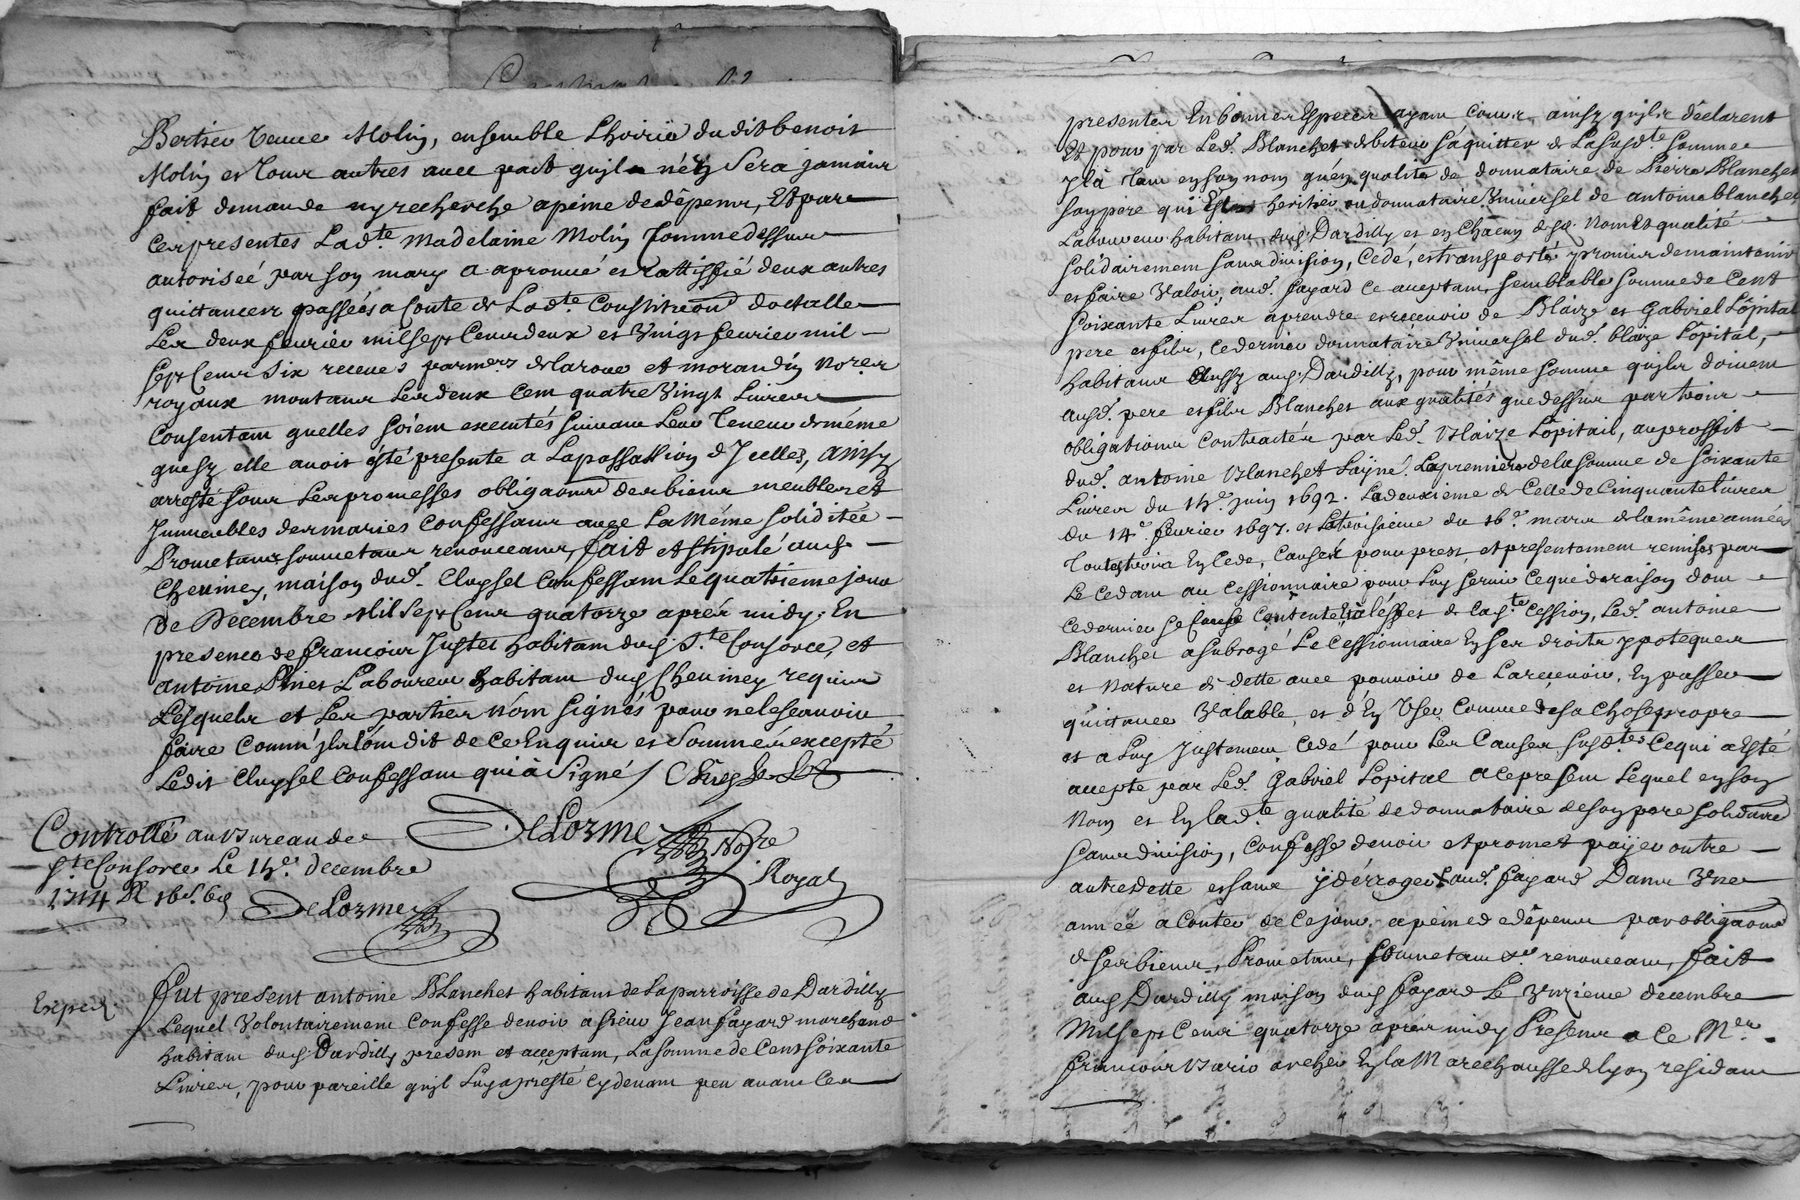 Bertier veuve Molin, ensemble Lhoirie dudit benoit
Molin et tous autres avec pait qujl n'en sera jamais
fait demande ny recherche a peine de dêpens, Et par
ces presentes Lad.te Madelaine Molin femme dessus
autoriseé par son mary a aprouvé et rattiffié deux autres
quittances passeés a conte de Lad.te Constitution dottalle
Les deux fevrier mil sept Cens deux et vingt fevrier mil
sept cens six receues par m.es delaroue et morandin No.res
royaux montans Les deux cent quatre vingt Livres
Consentant quelles soient executés suivant Leur Teneur de même
que sy elle avoit êté presente a La passassion d'Jcelles, ainsy
arresté sous Les promesses obliga.ons des biens meubles et
Jmmeubles des maries Confessans avec La Même soliditée
Prometans soumetans renonceans, fait et stipulé aud.
Cheviney, maison dud. Cluysel Confessant Le quatrieme jour
de Decembre Mil sept Cens quatorze aprés midy. En
presence de francois Justet habitant dud. S.te Consorce, et
antoine Laboureur habitant dud. Cheviney requis
Lesquels et Les parties n'ont signés pour ne le scavoir
faire Comm'jls l'ont dit de ce Enquis et Sommés excepté
Ledit Cluysel Confessant qui à Signé /
DeLorme No.re
Royal
Controllé au Bureau de
S.te Consorce Le 15.e decembre
1714 R 16s. 6d
DeLorme
Exped.
fut present antoine Blanchet habitant de La parroisse de Dardilly
Lequel Volontairement Confesse devoir a sieur Jean fayard marchand
habitant dud. Dardilly present et acceptant, La somme de Cent soixante
Livres, pour pareille qu'jl Luy a presté cy devant peu avant Les
presentes En bonnes Especes ayant cours ainsy qujls déclarent
Et pour par Led. Blanchet debiteur s'aquitter de La susd.te somme
Jl à tant en son nom qu'en qualité de donnataire de Pierre Blanchet
son pere qui Est heritier ou donnataire Vniversel de antoine blanchet
Laboureur habitant dud. Dardilly et en Chacun desd. Noms Et qualité
solidairement sans division, Cedé, et transporté promis de maintenir
et faire Valoir, aud. fayard ce aceptant, semblable somme de Cent
soixante Livres áprendre et recevoir de Blaize et Gabriel Lôpital
pere et fils, ce dernier donnatáire Vniversel dud. blaize Lôpital,
habitans Aussy aud. Dardilly, pour même somme qujls doivent
ausd. pere et fils Blanchet aux qualités que dessus par trois
obligations Contractés par Led. Blaize Lôpital, au proffit
dud. antoine Blanchet L'ayné. La premiere de la somme de soixante
Livres du 15.e juin 1692. La deuxieme de Celle de Cinquante Livres
du 14.e fevrier 1697. et La troisieme du 16.e mars de la même année
Toutes trois En Cede, Causés pour prest et presentement remises par
Le Cedant au Cessionnaire pour Luy servir ce que de raison dont
ce dernier se Confesse Contente Et à L'effet de lad.te Cession, Led. antoine
Blanchet a subrogé Le Cessionnaire En ses droits ypoteques
et Nature de dette avec pouvoir de La recevoir, En passer
quittance Valable, et d'En Vser Comme de sa Chose propre
et a Luy Justement Cedé pour Les Causes susd.tes Ce qui a Eté
accepté par Led. Gabriel Lopital a ce present Lequel en son
Nom et En lad.te qualité de donnataire de son pere solidaire
sans division, Confesse devoir et promet paÿer outre
autre dette et sans ÿ dérroger aud. fayard Dans Vne
anneé a Conter de ce jour a peine de dêpens par obliga.ons
de ses biens, Prometant, soumetant &.e renonceant, fait
aud. Dardilly maison dud. fayard Le Vnzieme decembre
Mil sept Cens quatorze aprés midy Presens a Ce M.re
francois Vario archer En la Marechaussée de Lyon residant